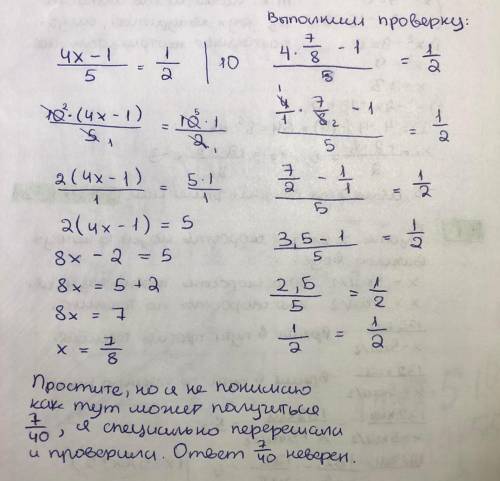 (4x-1)/5 = 1/2 | 10
10² · (4x-1)/5₁ = 10⁵ · 1/2₁
2(4x-1)/1 = 5·1/1
2(4x-1) = 5
8x - 2 = 5
8x = 5+2
8x = 7
x = 7/8
Выполним проверку:
(4 · 7/8 - 1)/5 = 1/2
(4¹/1 · 7/8₂ - 1)/5 = 1/2
(7/2 - 1/1)/5 = 1/2
(3,5 - 1)/5 = 1/2
2,5/5 = 1/2
1/2 = 1/2
Простите, но я не понимаю
как тут может получиться
7/40, я специально перерешала
и проверила. Ответ 7/40 неверен.